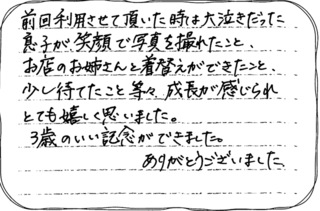 前回利用させて頂いた時は大泣きだった
息子が笑顔で写真を撮れたこと、
お店のお姉さんと着替えができたこと、
少し待てたこと等々、成長が感じられ
とても嬉しく思いました。
3歳のいい記念ができました。
ありがとうございました